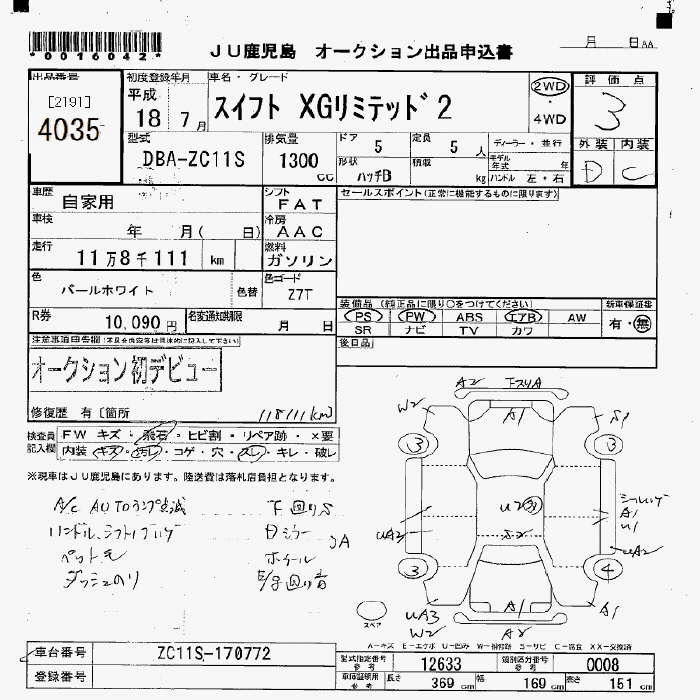 *0016042*
JU鹿児島 オークション出品申込書
月 日 AA
出品番号
[2191]
4035
初度登録年月
平成
18 7月
車名・グレード
スイフト XGリミテッド2
2WD
・
4WD
評価点
3
外装 内装
D C
型式
DBA-ZC11S
排気量
1300
cc
ドア
5
定員
5人
形状
ハッチB
積載
kg
ディーラー・並行
モデル年式 年
ハンドル 左・右
車歴
自家用
シフト
FAT
車検
年 月( 日)
冷房
AAC
走行
11万8千111 km
燃料
ガソリン
色
パールホワイト
色替
色コード
Z7T
セールスポイント(正常に機能するものに限ります)
装備品 (純正品に限り○をつけてください)
PS PW ABS エアB AW
SR ナビ TV カワ
新車保証書
有・無
後日品
R券
10,090円
名変通知期限
月 日
注意事項申告欄(不具合内容等は具体的に記入して下さい)
オークション初デビュー
修復歴 有〔箇所
118111km)
検査員記入欄
FW キズ・飛石・ヒビ割・リペア跡・×要
内装 キズ・汚レ・コゲ・穴・スレ・キレ・破レ
※現車はJU鹿児島にあります。陸送費は落札店負担となります。
A/C AUTOランプ点滅
ハンドル、シフトノブハゲ
ペット毛
ダッシュのり
下回りS
Dミラー
ホイール
A
A2 下スリA
W2 A1 S1
3 3
U2
S2
A1
U1
UA2
UA2
3 4
UA3 A1 A1
W2
スペア
A-キズ E-エクボ U-凹み W-補修跡 S-サビ C-腐食 XX-交換済
車台番号
ZC11S-170772
登録番号
型式指定番号
参考
12633
類別区分番号
参考
0008
車庫証明用
参考
長さ
369 cm
幅
169 cm
高さ
151 cm